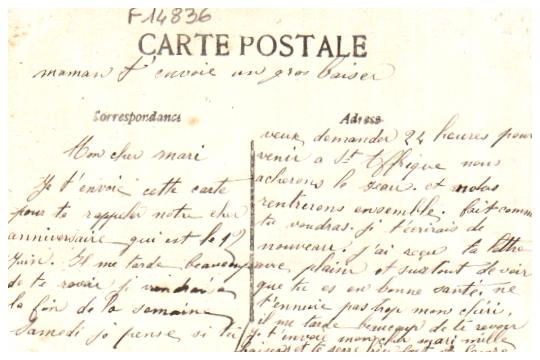 F 14836
CARTE POSTALE
maman t'envoie un gros baiser
Correspondance
Mon cher mari
Je t'envoie cette carte
pour te rappeler notre cher
anniversaire qui est le 12
Juin. Il me tarde beaucoup
de te revoir je viendrai à
la fin de la semaine
Samedi je pense si tu
Adresse
veux demander 24 heures pour
venir a St Affrique nous
acherons le veau et nous
rentrerons ensemble. fait comme
tu voudras. je t'écrirais de
nouveau. j'ai reçu ta lettre
avec plaisir et surtout de voir
que tu es en bonne santée, ne
t'ennuie pas trop mon chéri,
il me tarde beaucoup de te revoir
je t'envoie mon cher mari mille
baisers et te serre